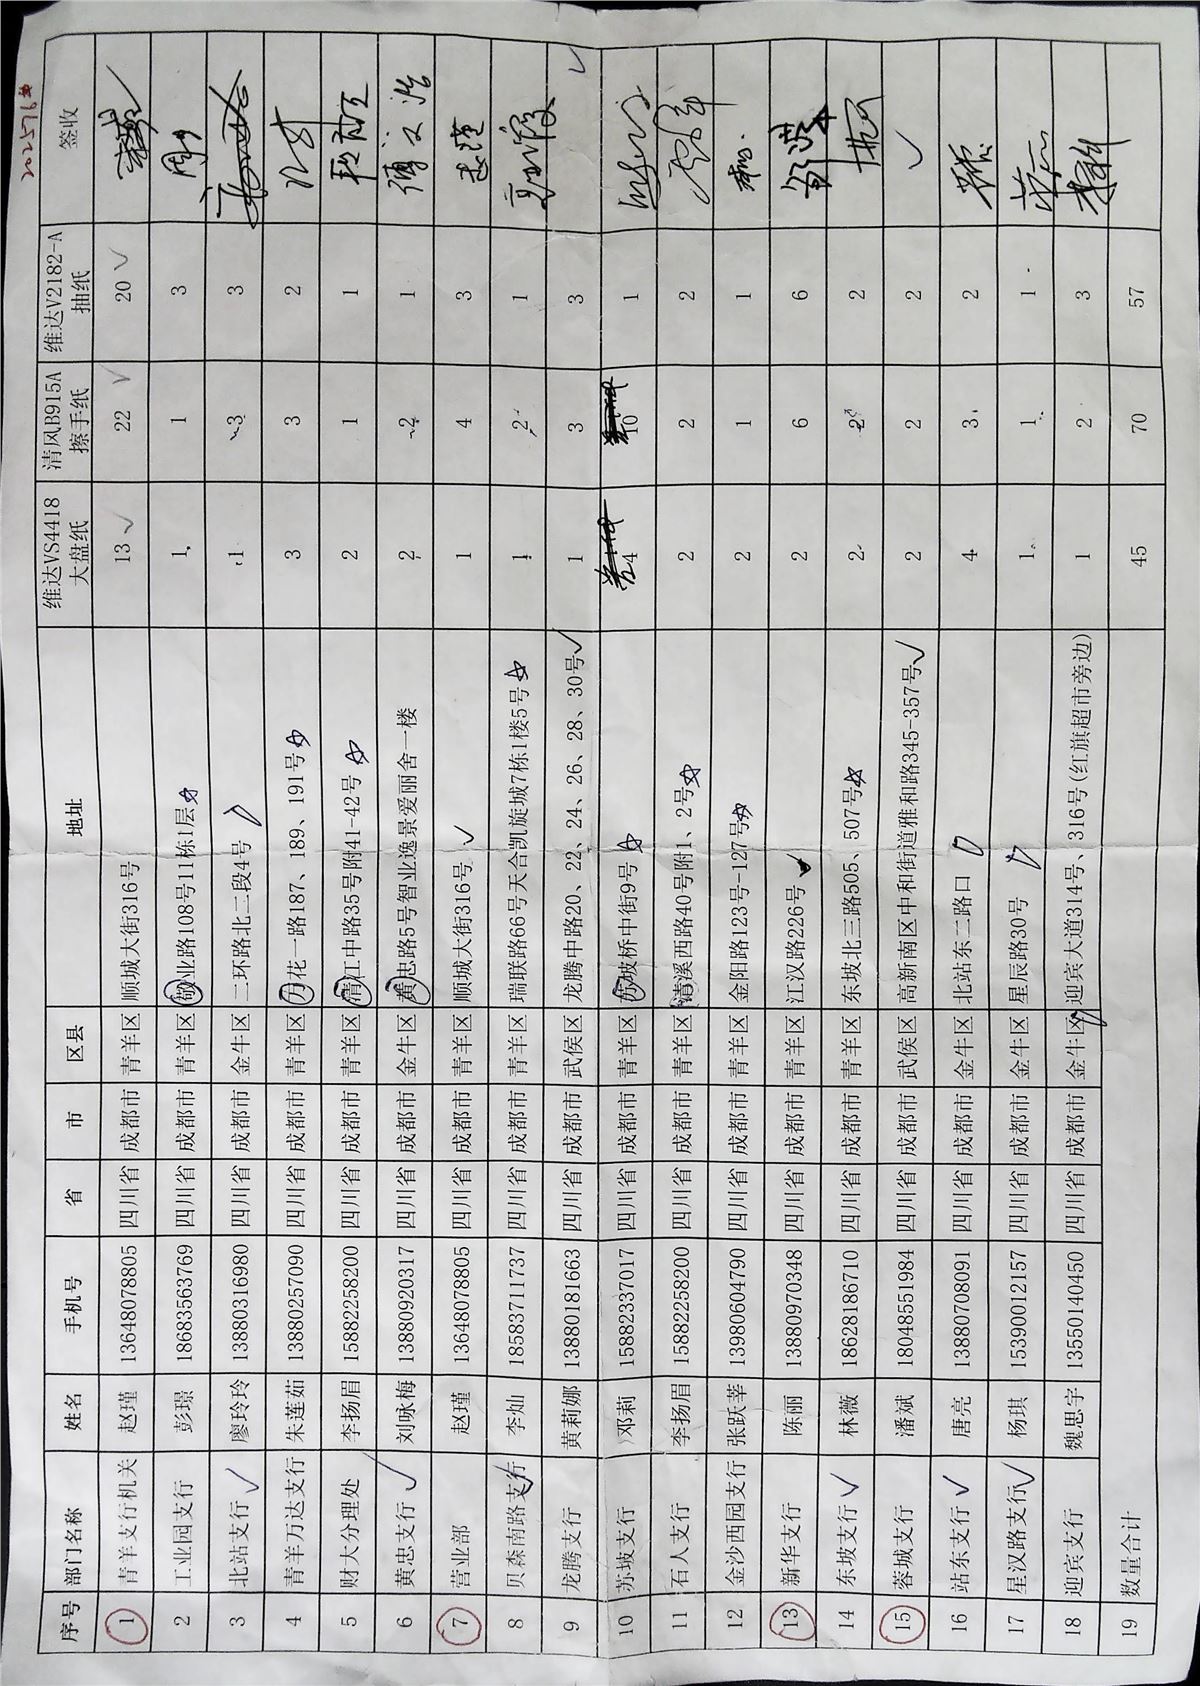 202576
序号 部门名称 姓名 手机号 省 市 区县 地址 维达VS4418大盘纸 清风B915A擦手纸 维达V2182-A抽纸 签收
1 青羊支行机关 赵瑾 13648078805 四川省 成都市 青羊区 顺城大街316号 13 22 20
2 工业园支行 彭璟 18683563769 四川省 成都市 青羊区 敬业路108号11栋1层 1 1 3
3 北站支行 廖玲玲 13880316980 四川省 成都市 金牛区 二环路北二段4号 1 3 3
4 青羊万达支行 朱莲茹 13880257090 四川省 成都市 青羊区 万花一路187、189、191号 3 3 2
5 财大分理处 李扬眉 15882258200 四川省 成都市 青羊区 清江中路35号附41-42号 2 1 1
6 黄忠支行 刘咏梅 13880920317 四川省 成都市 金牛区 黄忠路5号智业逸景爱丽舍一楼 2 2 1
7 营业部 赵瑾 13648078805 四川省 成都市 青羊区 顺城大街316号 1 4 3 赵瑾
8 贝森南路支行 李灿 18583711737 四川省 成都市 青羊区 瑞联路66号天合凯旋城7栋1楼5号 1 2 1
9 龙腾支行 黄莉娜 13880181663 四川省 成都市 武侯区 龙腾中路20、22、24、26、28、30号 1 3 3
10 苏坡支行 邓莉 15882337017 四川省 成都市 青羊区 苏坡桥中街9号 4 10 1
11 石人支行 李扬眉 15882258200 四川省 成都市 青羊区 清溪西路40号附1、2号 2 2 2
12 金沙西园支行 张跃莘 13980604790 四川省 成都市 青羊区 金阳路123号-127号 2 1 1
13 新华支行 陈丽 13880970348 四川省 成都市 青羊区 江汉路226号 2 6 6
14 东坡支行 林薇 18628186710 四川省 成都市 青羊区 东坡北三路505、507号 2 2 2
15 蓉城支行 潘斌 18048551984 四川省 成都市 武侯区 高新南区中和街道雅和路345-357号 2 2 2
16 站东支行 唐亮 13880708091 四川省 成都市 金牛区 北站东二路口 4 3 2
17 星汉路支行 杨琪 15390012157 四川省 成都市 金牛区 星辰路30号 1 1 1
18 迎宾支行 魏思宇 13550140450 四川省 成都市 金牛区 迎宾大道314号、316号(红旗超市旁边) 1 2 3
19 数量合计 45 70 57